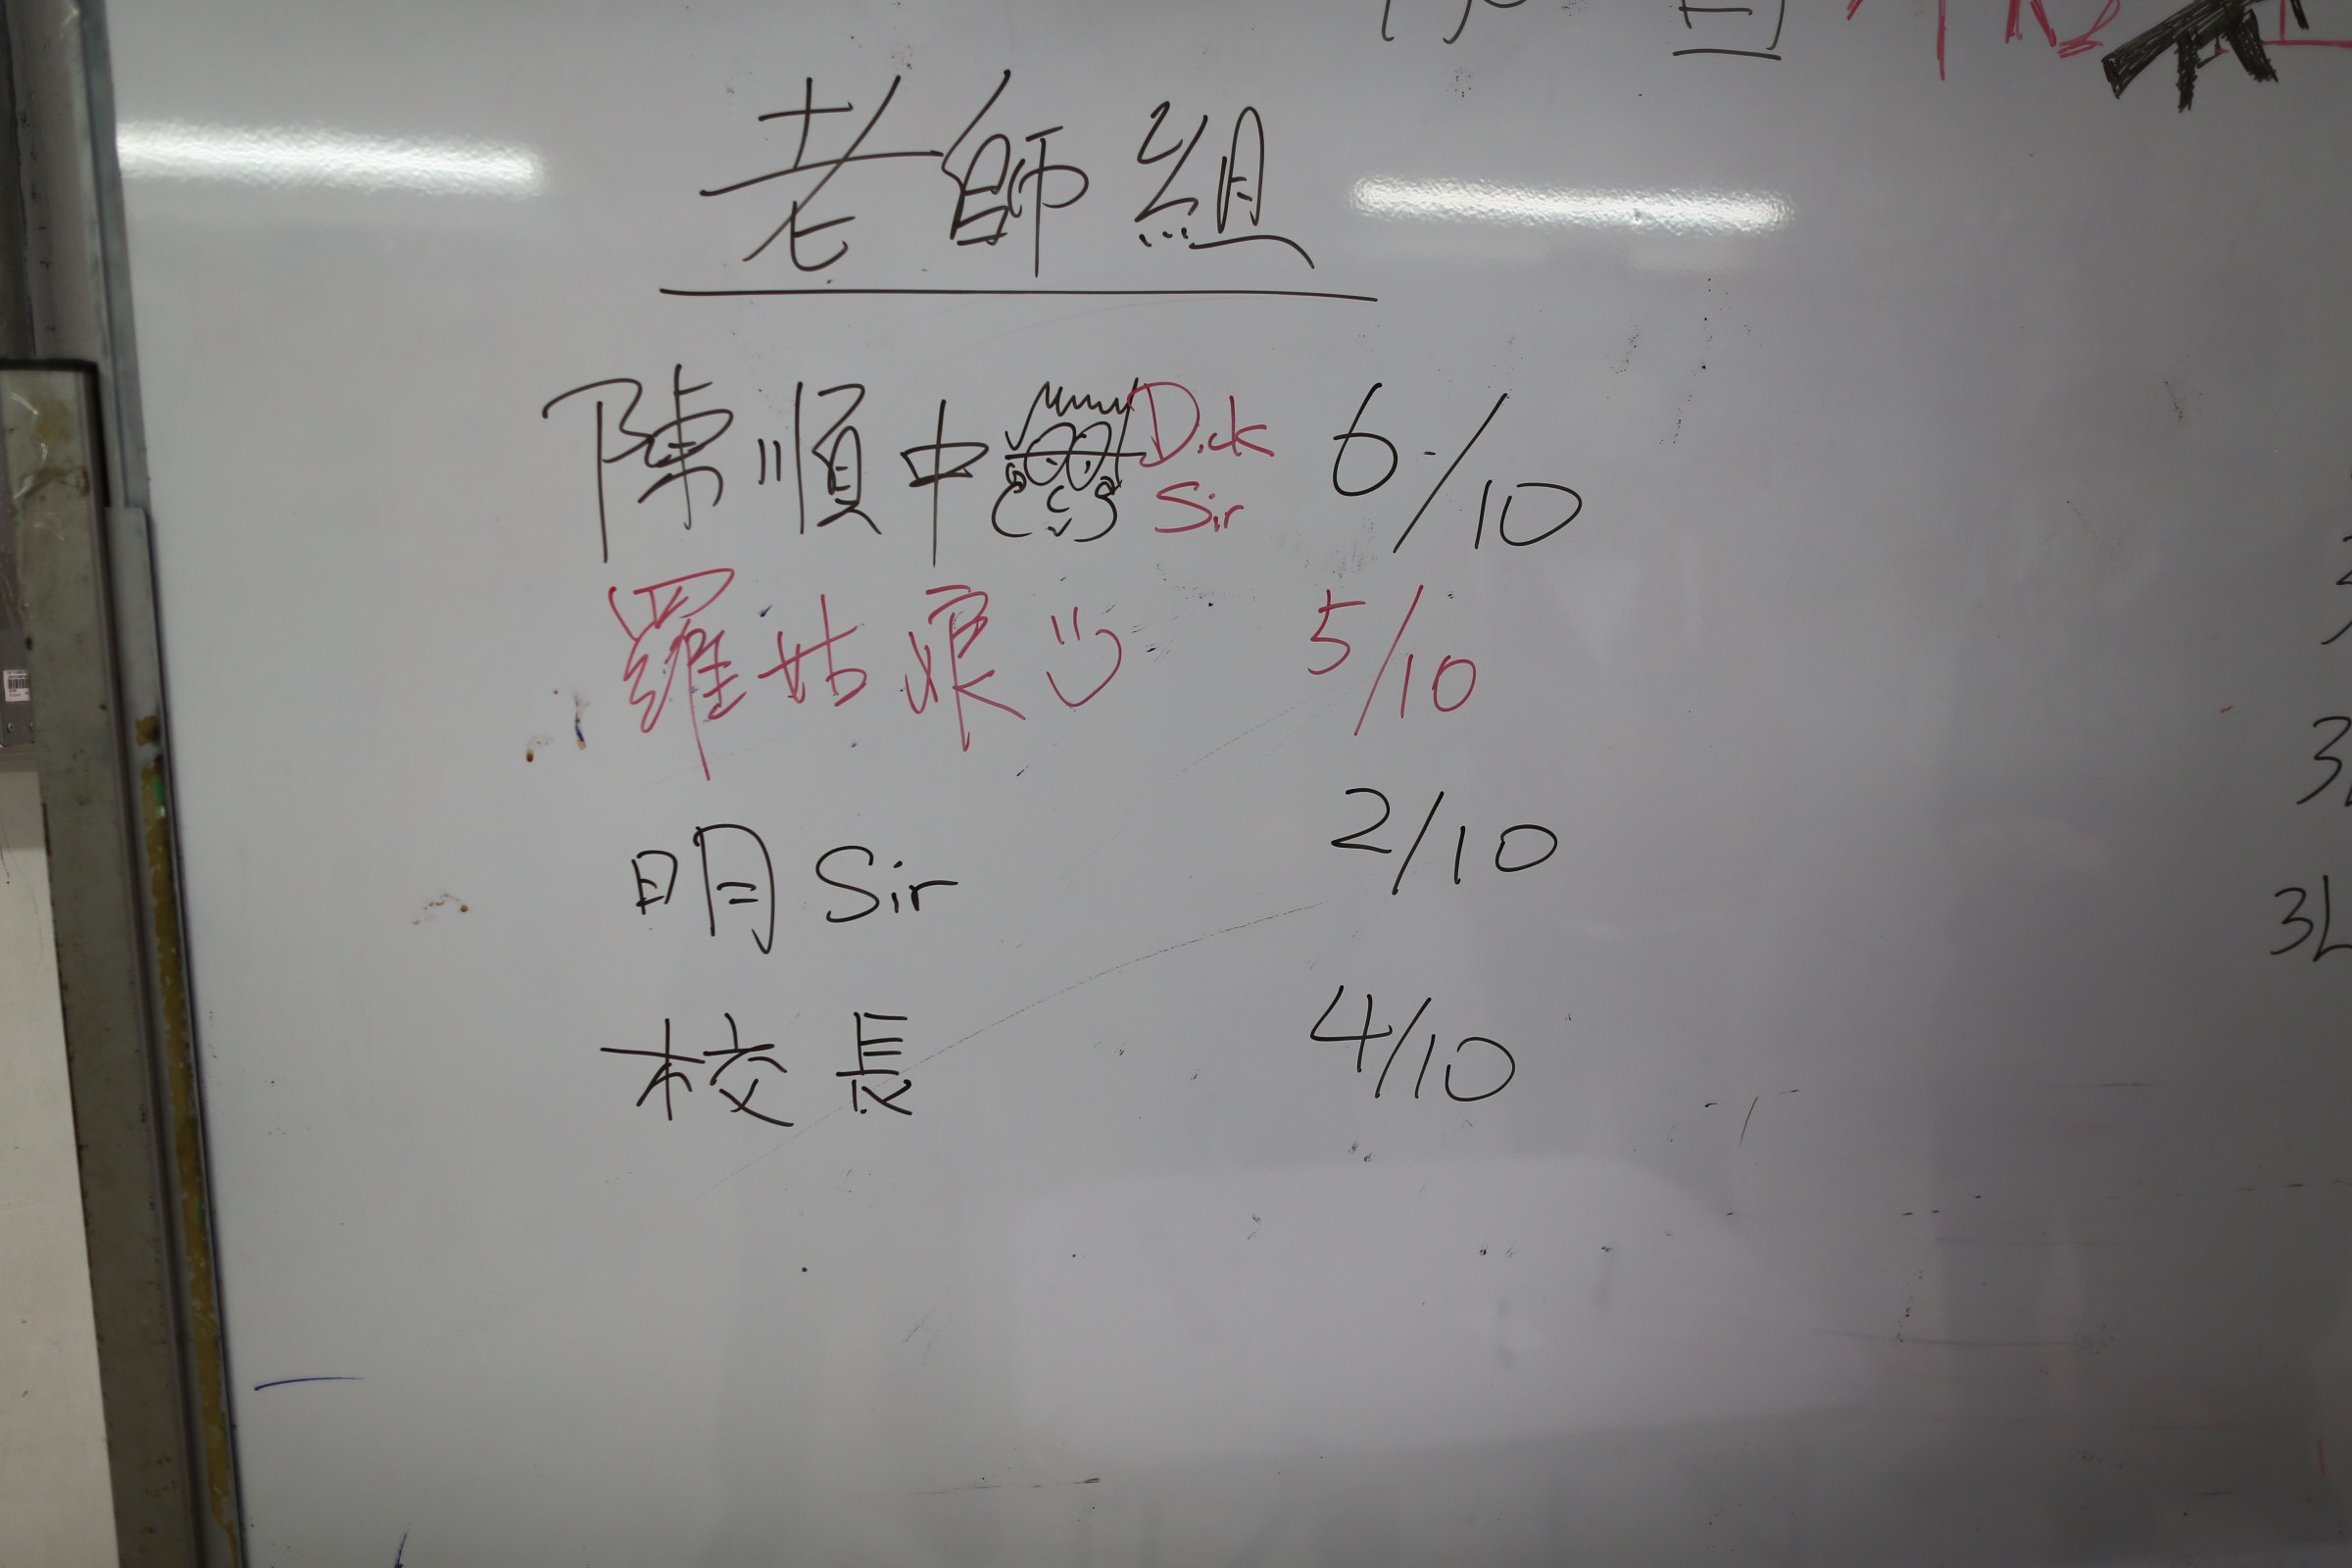 老師組
陳順中 Dick Sir 6/10
羅姑娘 5/10
明Sir 2/10
校長 4/10